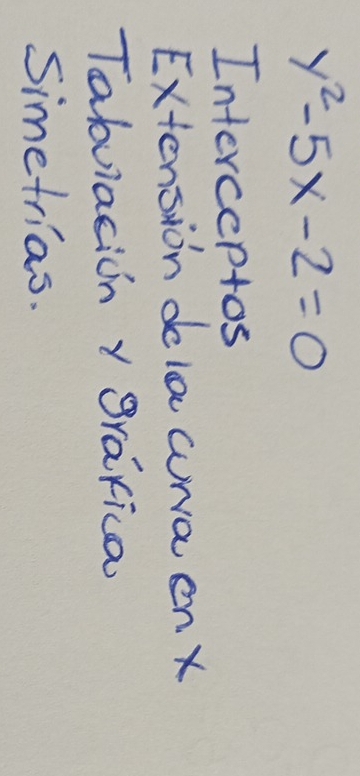 y²-5x-2=0
Interceptos
Extensión de la curva en x
Tabulación y gráfica
Simetrías.